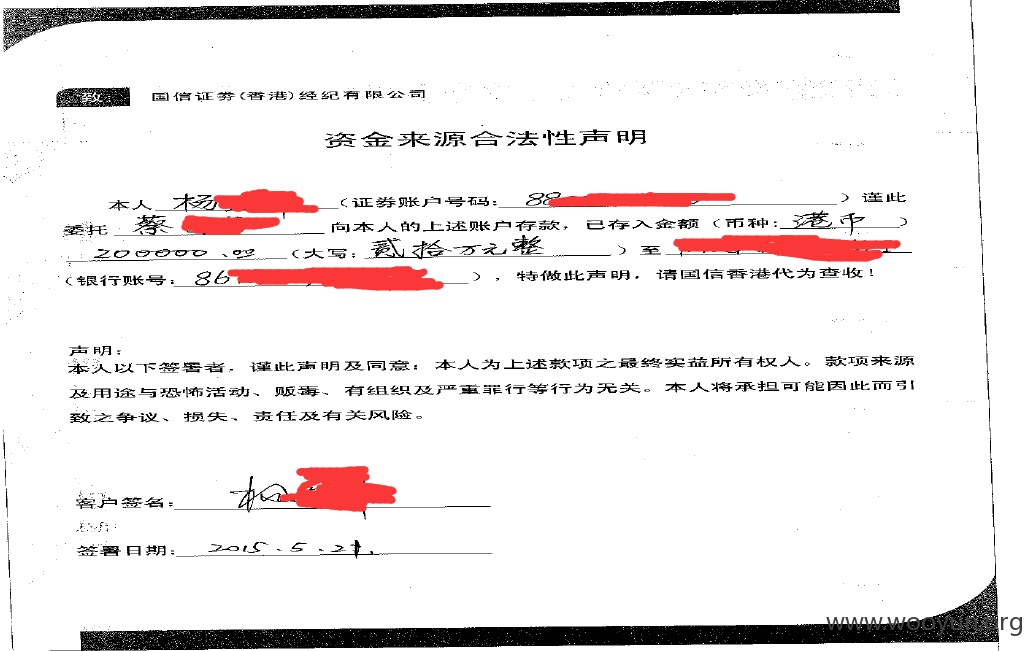 致 国信证券(香港)经纪有限公司
资金来源合法性声明
本人 杨 (证券账户号码: 88 ) 谨此
委托 蔡 向本人的上述账户存款，已存入金额（币种: 港币 ）
200000.00 (大写: 贰拾万元整 ) 至
(银行账号: 86 ) ，特做此声明，请国信香港代为查收！
声明:
本人以下签署者，谨此声明及同意：本人为上述款项之最终实益所有权人。款项来源
及用途与恐怖活动、贩毒、有组织及严重罪行等行为无关。本人将承担可能因此而引
致之争议、损失、责任及有关风险。
客户签名:
签署日期: 2015.5.21.